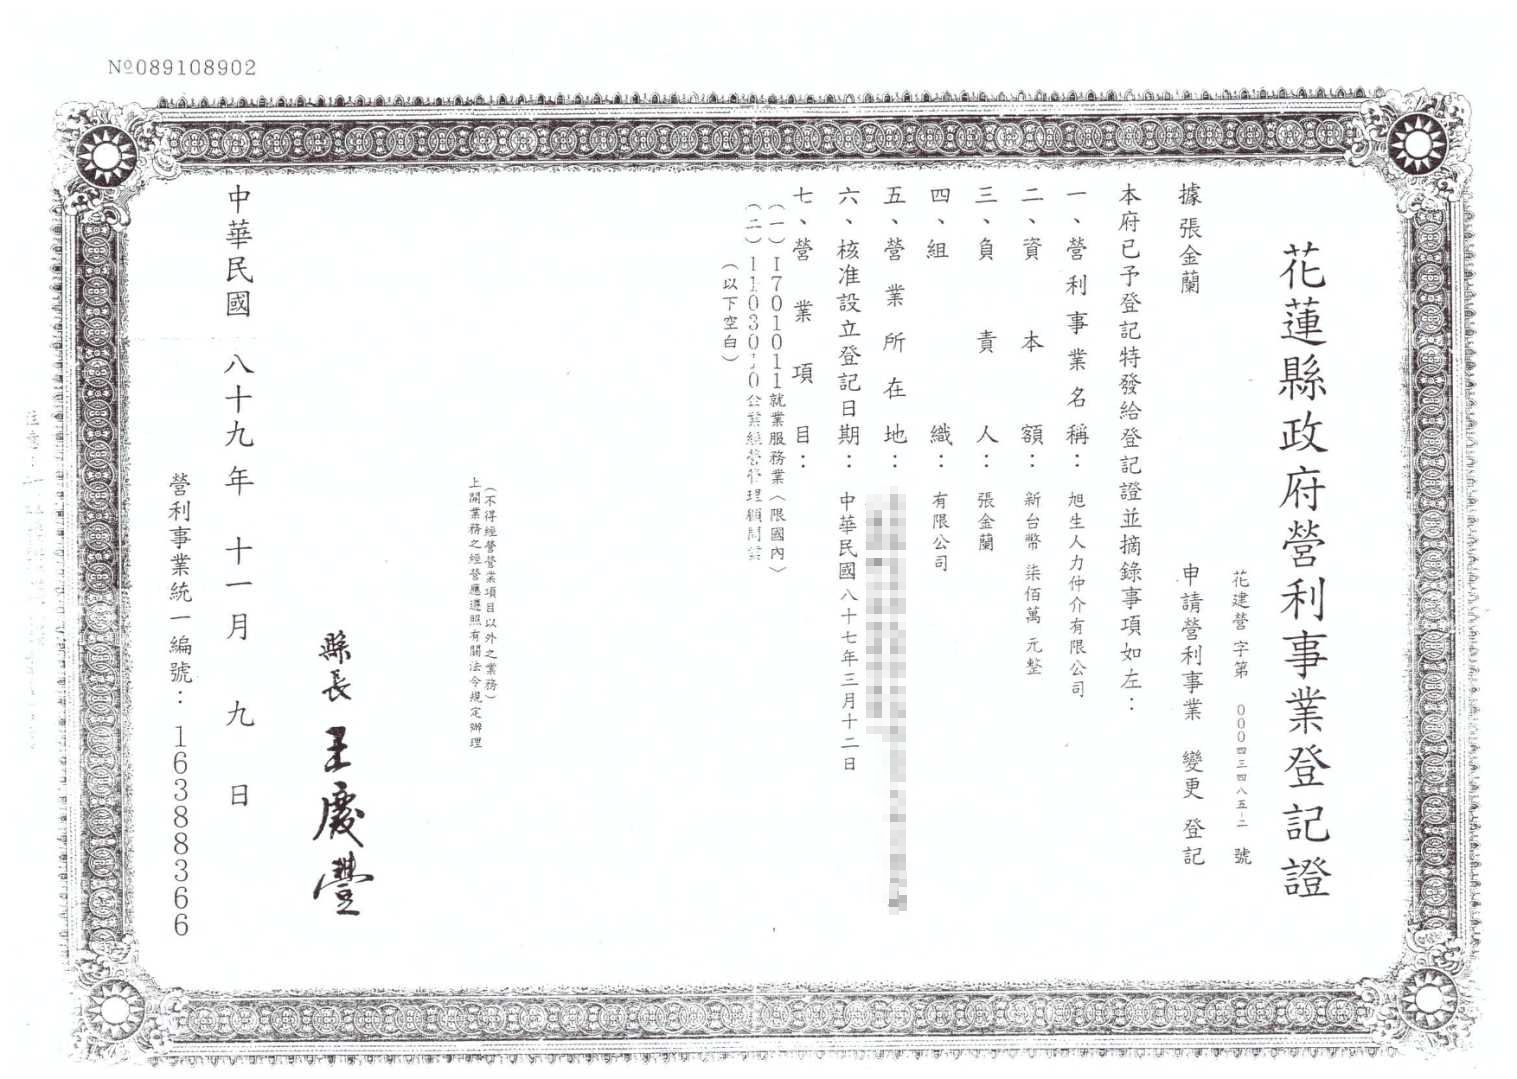 №089108902
花蓮縣政府營利事業登記證
花建營 字第 000四三四八五-二 號
據張金蘭 申請營利事業 變更 登記
本府已予登記特發給登記證並摘錄事項如左：
一、營利事業名稱：旭生人力仲介有限公司
二、資本額：新台幣 柒佰萬 元整
三、負責人：張金蘭
四、組織：有限公司
五、營業所在地：
六、核准設立登記日期：中華民國八十七年三月十二日
七、營業項目：
(一)I701011就業服務業〈限國內〉
(以下空白)
(不得經營營業項目以外之業務)
上開業務之經營應遵照有關法令規定辦理
縣長 王慶豐
中華民國 八十九年 十一月 九日
營利事業統一編號：16388366